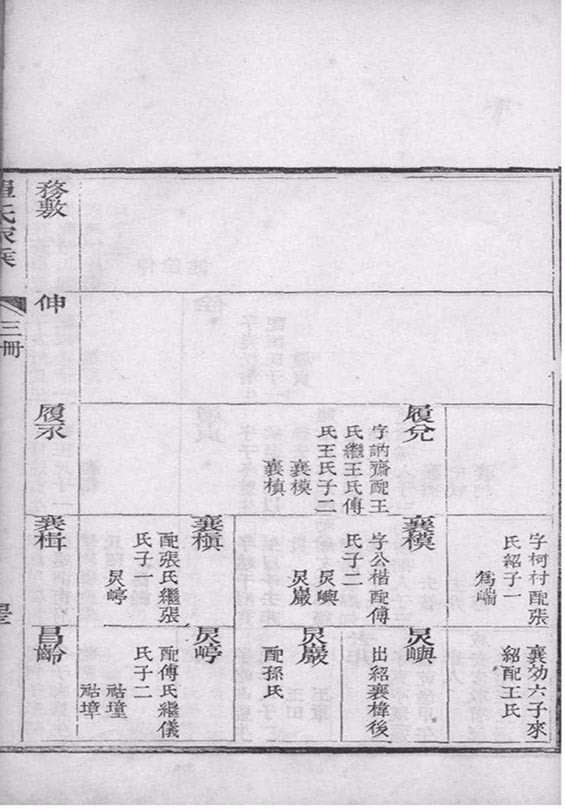 務敷
伸
履兌
字訥齋配王
氏繼王氏傅
氏王氏子二
襄模
襄楨
履永
字柯村配張
氏紹子一
為端
襄模
字公楷配傅
氏子二
炅嶼
炅巖
襄楨
配張氏繼張
氏子一
炅崞
襄楫
襄効六子來
紹配王氏
炅嶼
出紹襄樟後
炅巖
配孫氏
炅崞
配傅氏繼儀
氏子二
祜墥
祜墇
昌齡
氏家族
三冊